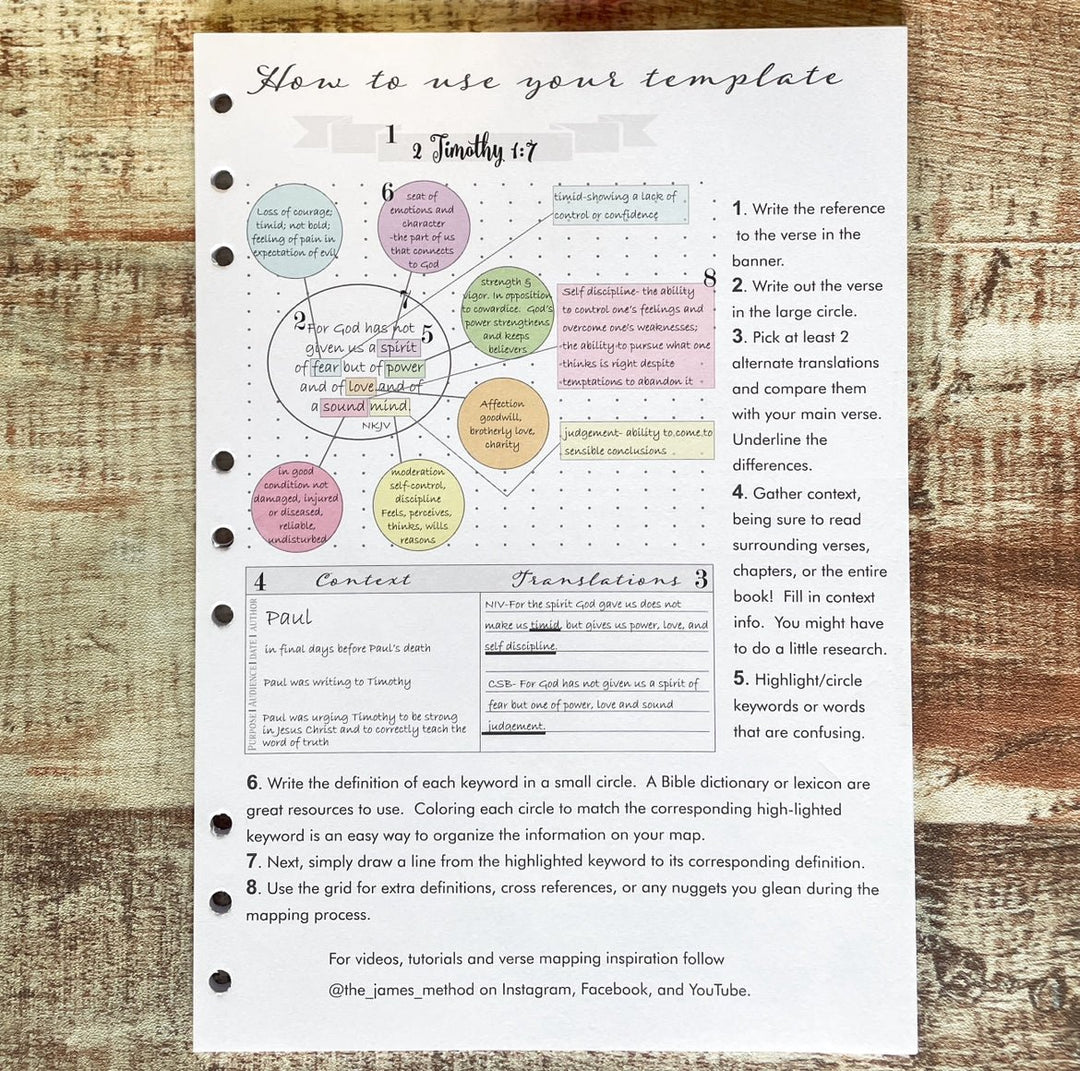 How to use your template
1
2 Timothy 1:7
Loss of courage;
timid; not bold;
feeling of pain in
expectation of evil
6
seat of
emotions and
character
-the part of us
that connects
to God
timid-showing a lack of
control or confidence
7
2
For God has not
given us a spirit
5
of fear but of power
and of love and of
a sound mind.
NKJV
strength &
vigor. In opposition
to cowardice. God's
power strengthens
and keeps
believers
8
Self discipline- the ability
to control one's feelings and
overcome one's weaknesses;
the ability to pursue what one
thinks is right despite
temptations to abandon it
Affection
goodwill,
brotherly love,
charity
judgement- ability to come to
sensible conclusions
in good
condition not
damaged, injured
or diseased,
reliable,
undisturbed
moderation
self-control,
discipline
Feels, perceives,
thinks, wills
reasons
4 Context
Translations 3
PURPOSE| AUDIENCE| DATE| AUTHOR
Paul
in final days before Paul's death
Paul was writing to Timothy
Paul was urging Timothy to be strong
in Jesus Christ and to correctly teach the
word of truth
NIV-For the spirit God gave us does not
make us timid, but gives us power, love, and
self discipline.
CSB- For God has not given us a spirit of
fear but one of power, love and sound
judgement.
1. Write the reference
to the verse in the
banner.
2. Write out the verse
in the large circle.
3. Pick at least 2
alternate translations
and compare them
with your main verse.
Underline the
differences.
4. Gather context,
being sure to read
surrounding verses,
chapters, or the entire
book! Fill in context
info. You might have
to do a little research.
5. Highlight/circle
keywords or words
that are confusing.
6. Write the definition of each keyword in a small circle. A Bible dictionary or lexicon are
great resources to use. Coloring each circle to match the corresponding high-lighted
keyword is an easy way to organize the information on your map.
7. Next, simply draw a line from the highlighted keyword to its corresponding definition.
8. Use the grid for extra definitions, cross references, or any nuggets you glean during the
mapping process.
For videos, tutorials and verse mapping inspiration follow
@the_james_method on Instagram, Facebook, and YouTube.